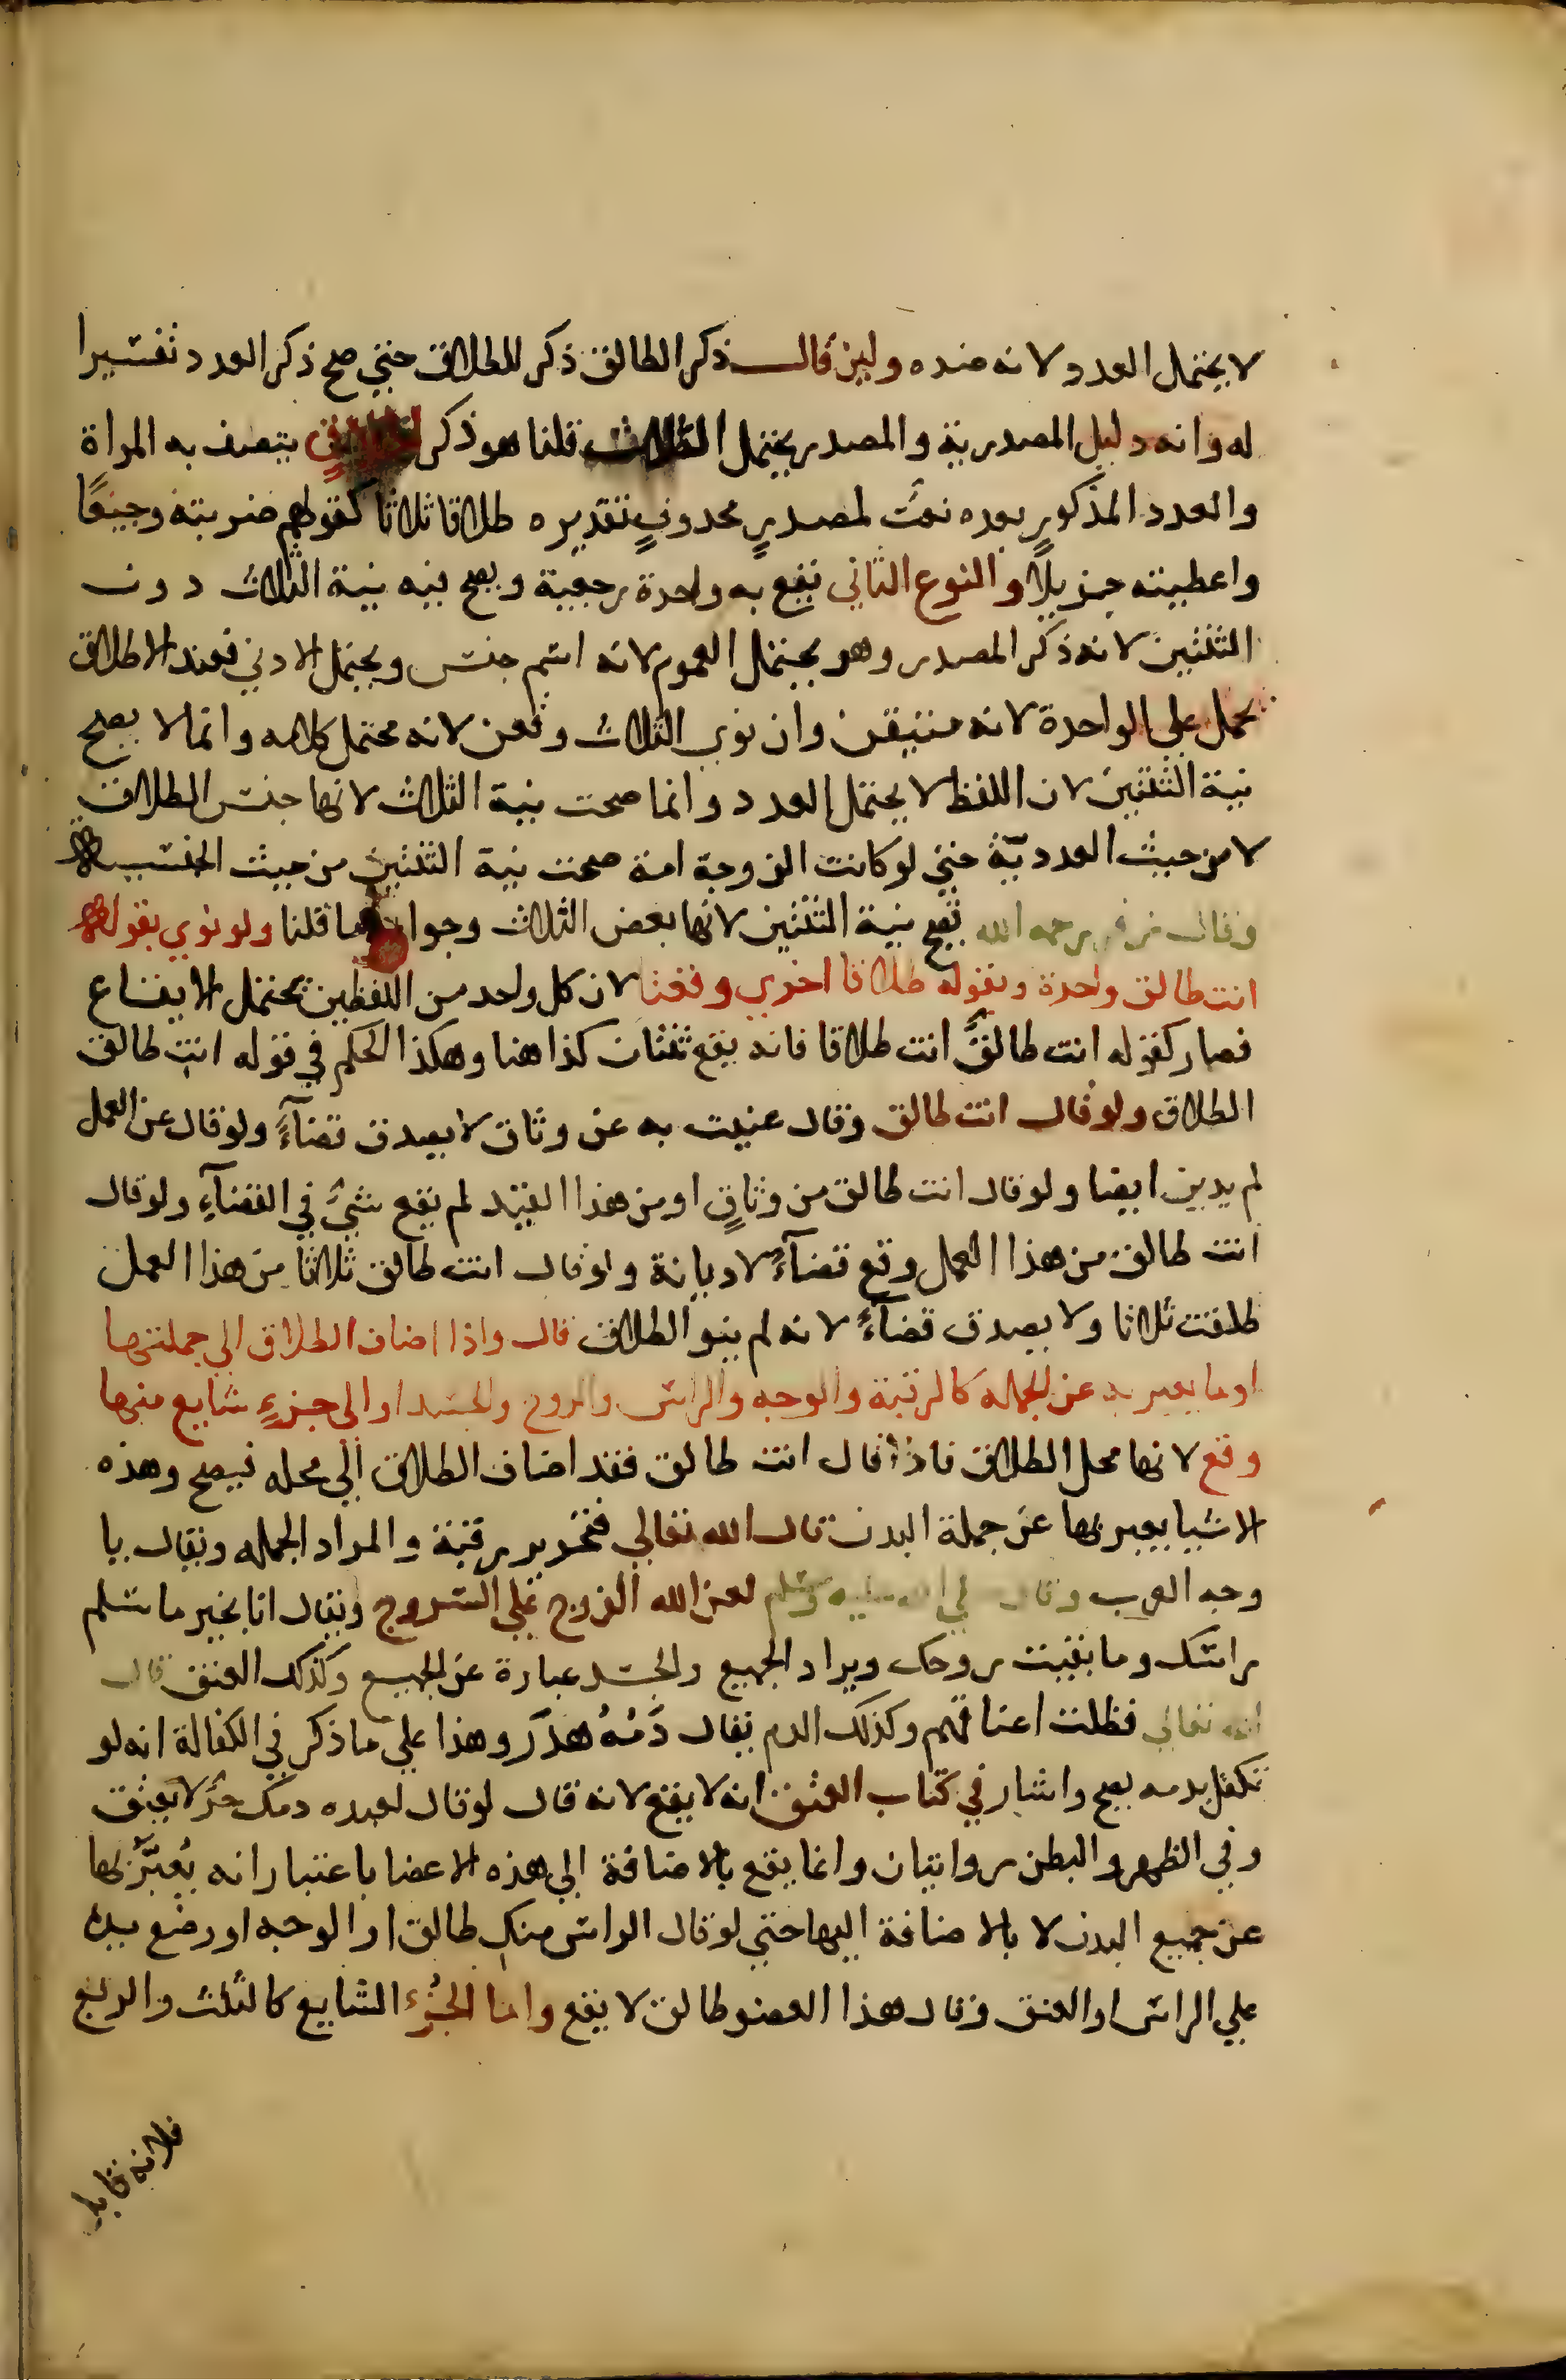 لا يحتمل العدد لانه ضده ولين قال ذكر الطالق ذكر للطلاق حتي صح ذكر العدد تفسيرا
له وانه دليل المصدرية والمصدر يحتمل الثلاث قلنا هو ذكر لطلاق يتصف به المراة
والعدد المذكور بعده نعت لمصدرٍ محذوفٍ تقديره طلاقا ثلاثا كقولهم ضربته وجيعًا
واعطيته جزيلًا والنوع الثاني يقع به واحدة رجعية ويصح فيه نية الثلاث دون
الثنتين لانه ذكر المصدر وهو يحتمل العموم لانه اسم جنس ويحتمل الادني فعند الاطلاق
يحمل علي الواحدة لانه متيقن وان نوي الثلاث وقعن لانه محتمل كلامه وانما لا يصح
نية الثنتين لان اللفظ لا يحتمل العدد وانما صحت نية الثلاث لانها جنس الطلاق
لا من حيث العددية حتي لو كانت الزوجة امة صحت نية الثنتين من حيث الجنسية
وقال زفر رحمه الله تصح نية الثنتين لانها بعض الثلاث وجوابه ما قلنا ولو نوي بقوله
انت طالق واحدة وبقوله طلاقا اخري وقعتا لان كل واحد من اللفظين يحتمل الايقاع
فصار كقوله انت طالقٌ انت طلاقا فانه يقع ثنتان كذا هنا وهكذا الحكم في قوله انت طالق
الطلاق ولو قال انت طالق وقال عنيت به عن وثاق لا يصدق قضآءً ولو قال عن العمل
لم يدين ايضا ولو قال انت طالق من وثاقٍ او من هذا القيد لم يقع شيٌ في القضآءِ ولو قال
انت طالق من هذا العمل وقع قضآءً لا ديانة ولو قال انت طالق ثلاثا من هذا العمل
طلقت ثلاثا ولا يصدق قضآءً لانه لم ينو الطلاق قال واذا اضاف الطلاق الي جملتها
او ما يعبر به عن الجمله كالرقبة والوجه والراس والروح والجسد او الي جزءٍ شايع منها
وقع لانها محل الطلاق فاذا قال انت طالق فقد اضاف الطلاق الي محله فيصح وهذه
الاشيا يعبر بها عن جملة البدن قال الله تعالي فتحرير رقبة والمراد الجمله ويقال يا
وجه العرب وقال صلي الله عليه وسلم لعن الله الفروج علي السروج ويقال انا بخير ما سلم
راسك وما بقيت روحك ويراد الجميع والجسد عبارة عن الجميع وكذلك العنق قال
الله تعالي فظلت اعناقهم وكذلك الدم يقال دَمُهُ هدَرٌ وهذا علي ما ذكر في الكفالة انه لو
تكفل بدمه يصح واشار في كتاب العتق انه لا يقع لانه قال لو قال لعبده دمك حرٌ لا يعتق
وفي الظهر والبطن روايتان وانما يقع بالاضافة الي هذه الاعضا باعتبار انه يُعبَّرُ بها
عن جميع البدن لا بالاضافة اليها حتي لو قال الراس منك طالق او الوجه او وضع يده
علي الراس او العنق وقال هذا العضو طالق لا يقع واما الجزُء الشايع كالثلث والربع
فلانه قابل